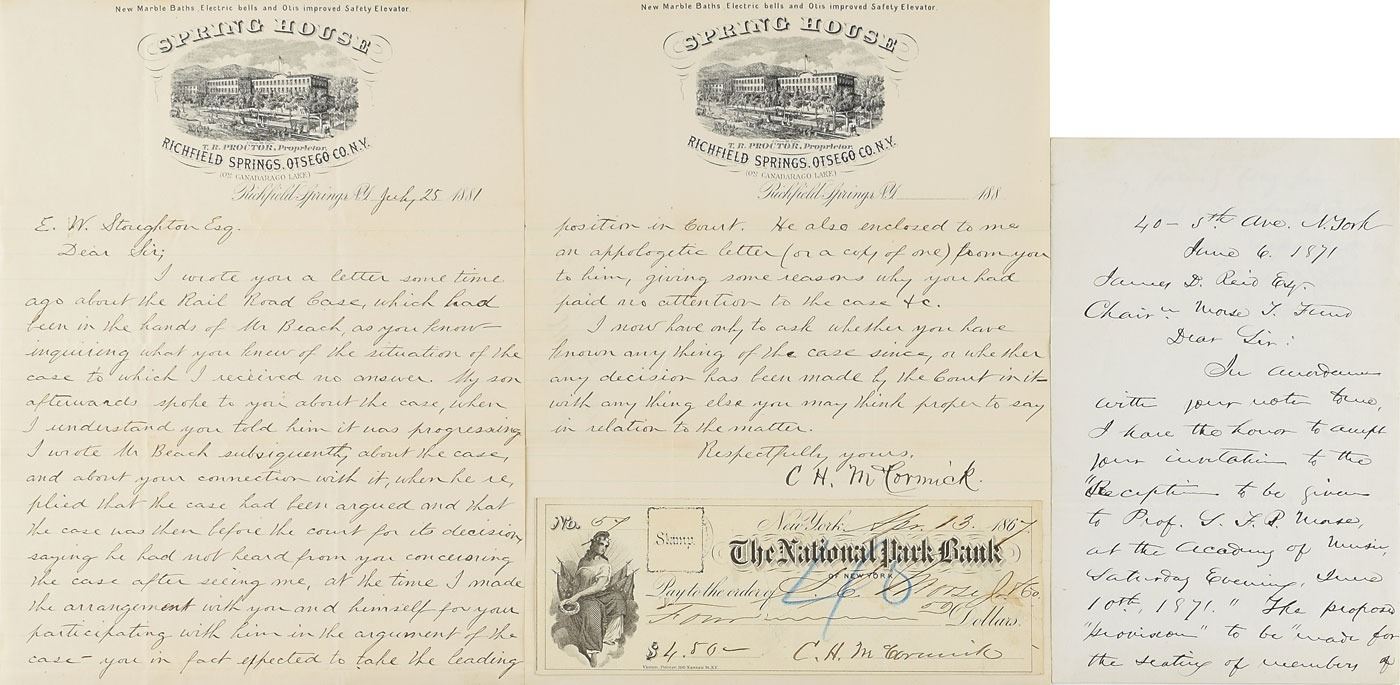 New Marble Baths, Electric bells and Otis improved Safety Elevator.
SPRING HOUSE
T. R. PROCTOR, Proprietor.
RICHFIELD SPRINGS, OTSEGO CO. N.Y.
(ON CANADARAGO LAKE)
Richfield Springs, N.Y. July 25 1881
E. W. Stoughton Esq.
Dear Sir;
I wrote you a letter some time
ago about the Rail Road Case, which had
been in the hands of Mr Beach, as you know—
inquiring what you knew of the situation of the
case to which I received no answer. My son
afterwards spoke to you about the case, when
I understand you told him it was progressing
I wrote Mr Beach subsiquently, about the case,
and about your connection with it, when he re,
plied that the case had been argued and that
the case was then before the court for its decision,
saying he had not heard from you concerning
the case after seeing me, at the time I made
the arrangement with you and himself for your
participating with him in the argument of the
case— you in fact expected to take the leading
New Marble Baths, Electric bells and Otis improved Safety Elevator.
SPRING HOUSE
T. R. PROCTOR, Proprietor.
RICHFIELD SPRINGS, OTSEGO CO. N.Y.
(ON CANADARAGO LAKE)
Richfield Springs, N.Y. 188
position in Court. He also enclosed to me
an appologetic letter (or a copy of one) from you
to him, giving some reasons why you had
paid no attention to the case &c.
I now have only to ask whether you have
known any thing of the case since, or whether
any decision has been made by the Court in it—
with any thing else you may think proper to say
in relation to the matter.
Respectfully yours,
C. H. McCormick.
No. 57
Stamp
New York, Apr. 13. 1867
The National Park Bank
OF NEW YORK
Pay to the order of
Four 50/ Dollars.
$4.50— C. H. McCormick
40 – 5th Ave. N. York
June 6. 1871
James D. Reid Esq.
Chair'n Morse T. Fund
Dear Sir:
In accordance
with your note to me,
I have the honor to accept
your invitation to the
"Reception to be given
to Prof. S. F. B. Morse,
at the Academy of Music,
Saturday Evening, June
10th, 1871." The proposed
"provision" to be "made for
the seating of members of